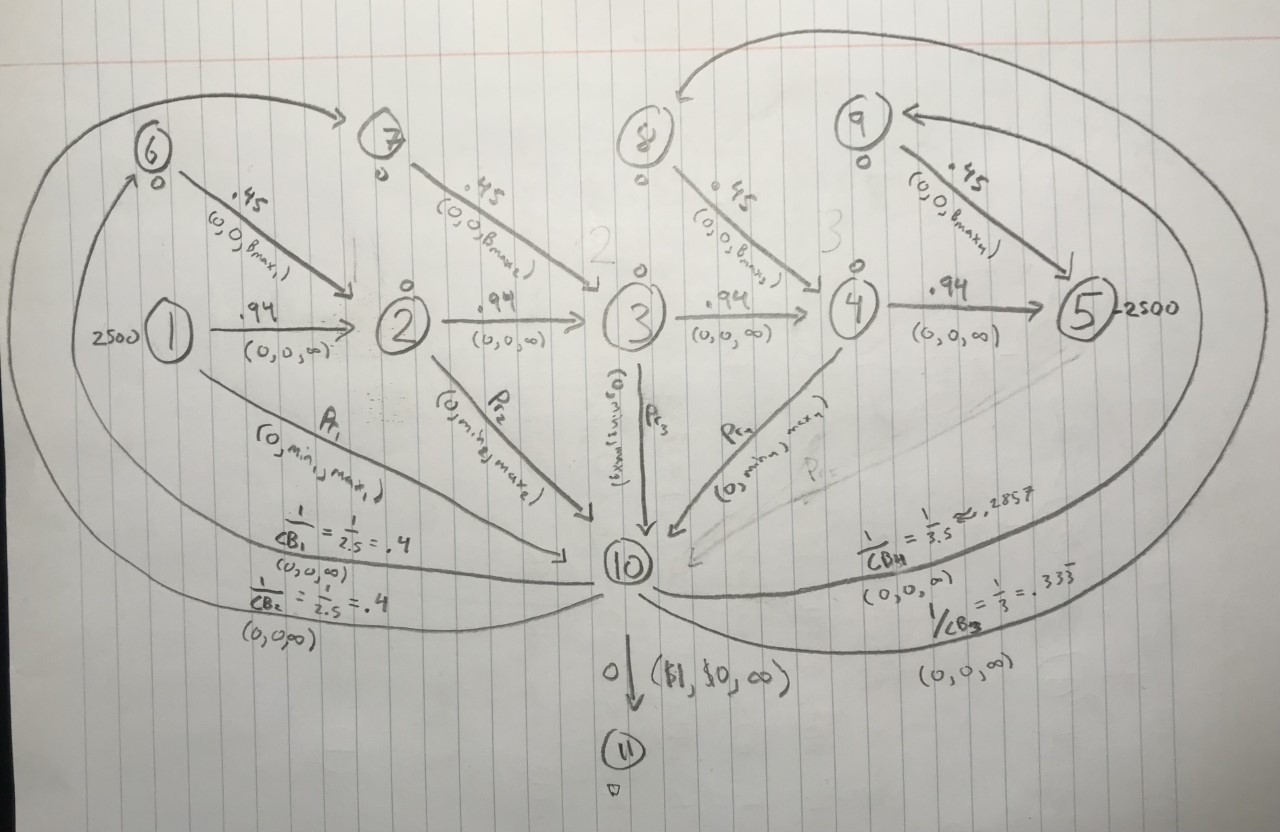 6
0
7
0
8
0
9
0
.45
(0,0,Bmax₁)
.45
(0,0,Bmax₂)
.45
(0,0,Bmax₃)
.45
(0,0,Bmax₄)
2
3
2500
1
.94
(0,0,∞)
0
2
.94
(0,0,∞)
0
3
.94
(0,0,∞)
0
4
.94
(0,0,∞)
5
-2500
Pr₁
(0,min₁,max₁)
Pr₂
(0,min₂,max₂)
Pr₃
(0,min₃,max₃)
Pr₄
(0,min₄,max₄)
1/CB₁ = 1/2.5 = .4
(0,0,∞)
1/CB₂ = 1/2.5 = .4
(0,0,∞)
10
1/CB₄ = 1/3.5 ≈ .2857
(0,0,∞)
1/CB₃ = 1/3 = .333̅
(0,0,∞)
0 ($1, $0, ∞)
11
0